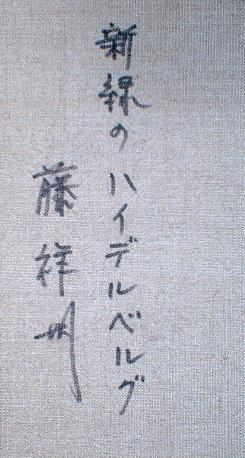 新緑のハイデルベルグ
藤祥州